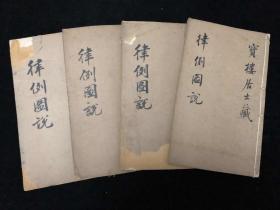 寶樓居士藏
律例圖說
律例圖說
律例圖說
律例圖說